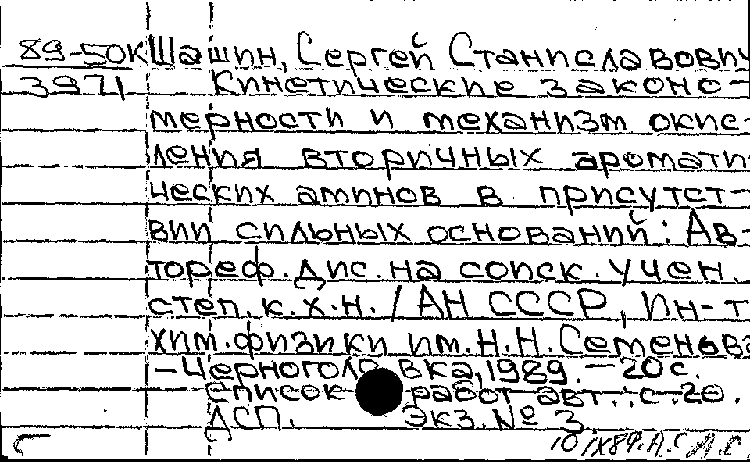 89-50К Шашин, Сергей Станиславович
3971 Кинетические законо-
мерности и механизм окис-
ления вторичных аромати
ческих аминов в присутст-
вии сильных оснований: Ав-
тореф. дис. на соиск. учен.
степ. к.х.н. / АН СССР, Ин-т
хим. физики им. Н.Н. Семенова
- Черноголовка, 1989. - 20 с.
Список работ авт.: с. 20.
ДСП. Экз. № 3.